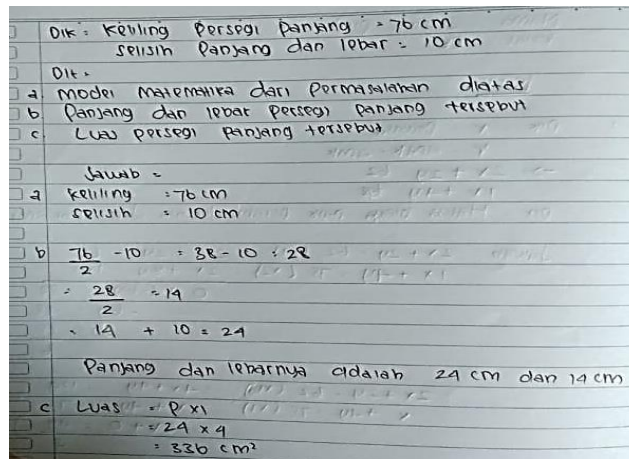 Dik : Keliling Persegi Panjang = 76 cm
selisih Panjang dan lebar = 10 cm
Dit :
a model Matematika dari Permasalahan diatas
b Panjang dan lebar Persegi Panjang tersebut
c Luas persegi Panjang tersebut
Jawab =
a keliling = 76 cm
selisih = 10 cm
b 76/2 - 10 = 38 - 10 = 28
= 28/2 = 14
= 14 + 10 = 24
Panjang dan lebarnya adalah 24 cm dan 14 cm
c Luas = P x l
= 24 x 4
= 336 cm²